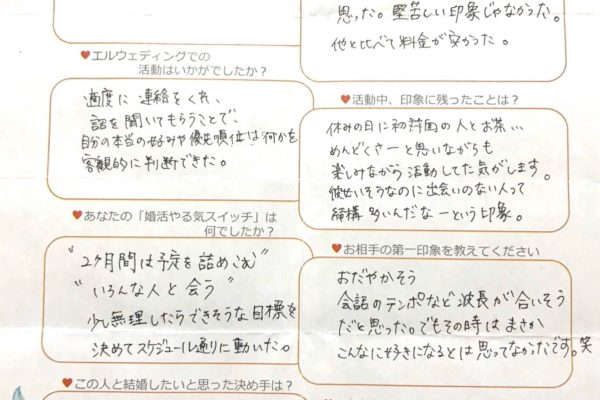 思った。堅苦しい印象じゃなかった。
他と比べて料金が安かった。
♥エルウェディングでの
活動はいかがでしたか？
適度に連絡をくれ、
話を聞いてもらうことで、
自分の本当の好みや優先順位は何かを
客観的に判断できた。
♥活動中、印象に残ったことは？
休みの日に初対面の人とお茶…
めんどくさーと思いながらも
楽しみながら活動してた気がします。
彼女いそうなのに出会いのない人って
結構多いんだなーという印象。
♥あなたの「婚活やる気スイッチ」は
何でしたか？
"2ヶ月間は予定を詰めこむ"
"いろんな人と会う"
少し無理したらできそうな目標を
決めてスケジュール通りに動いた。
♥お相手の第一印象を教えてください
おだやかそう
会話のテンポなど波長が合いそう
だと思った。でもその時はまさか
こんなに好きになるとは思ってなかったです。笑
♥この人と結婚したいと思った決め手は？